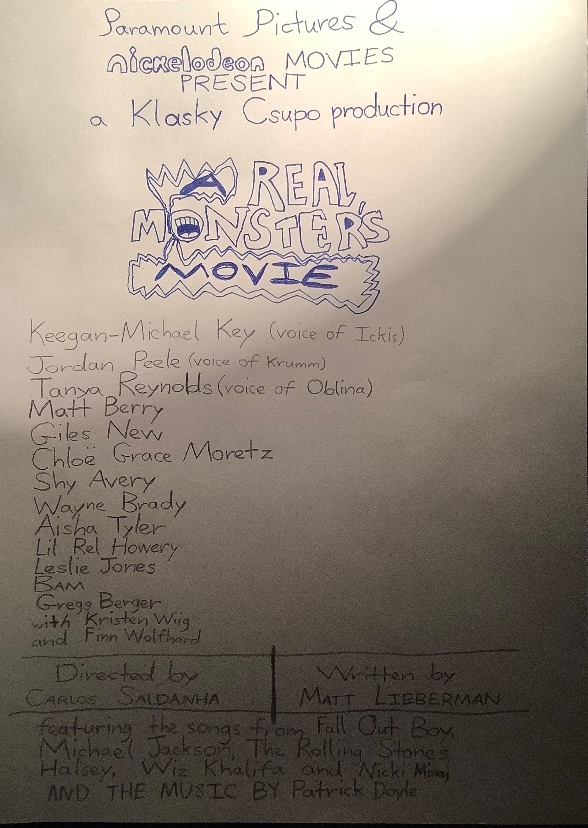 Paramount Pictures &
nickelodeon MOVIES
PRESENT
a Klasky Csupo production
A REAL
MONSTERS
MOVIE
Keegan-Michael Key (voice of Ickis)
Jordan Peele (voice of Krumm)
Tanya Reynolds (voice of Oblina)
Matt Berry
Giles New
Chloë Grace Moretz
Shy Avery
Wayne Brady
Aisha Tyler
Lil Rel Howery
Leslie Jones
BAM
Gregg Berger
with Kristen Wiig
and Finn Wolfhard
Directed by
CARLOS SALDANHA
Written by
MATT LIEBERMAN
featuring the songs from Fall Out Boy,
Michael Jackson, The Rolling Stones,
Halsey, Wiz Khalifa and Nicki Minaj
AND THE MUSIC BY Patrick Doyle